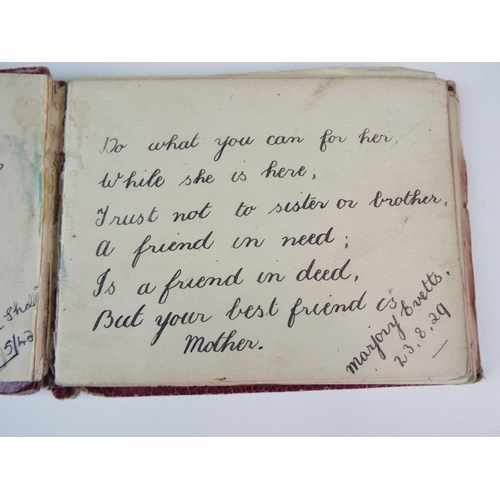 Do what you can for her,
While she is here,
Trust not to sister or brother,
A friend in need;
Is a friend in deed,
But your best friend is
Mother.
Marjory Evetts.
23.8.29